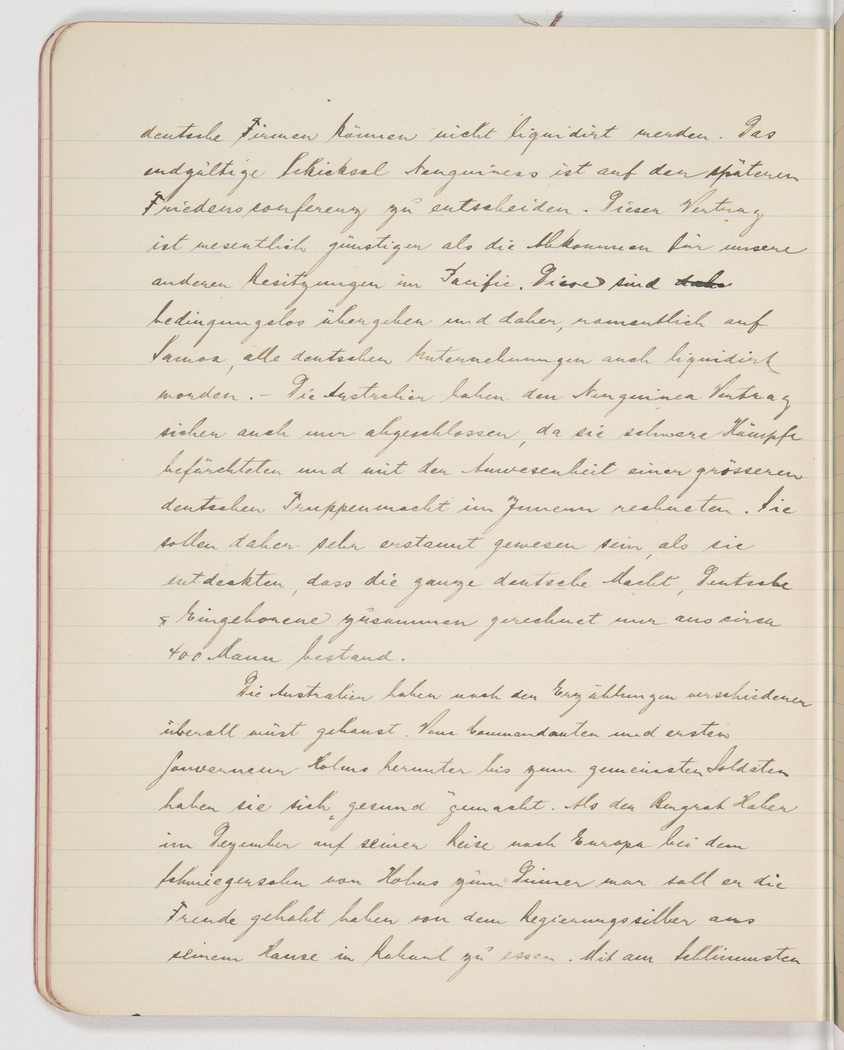 deutsche Firmen können nicht liquidirt werden. Das
endgültige Schicksal Neuguineas ist auf der späteren
Friedensconferenz zu entscheiden. Dieser Vertrag
ist wesentlich günstiger als die Abkommen für unsere
anderen Besitzungen im Pacific. Diese sind
bedingungslos übergeben und daher, namentlich auf
Samoa, alle deutschen Unternehmungen auch liquidirt
worden. – Die Australier haben den Neuguinea Vertrag
sicher auch nur abgeschlossen, da sie schwere Kämpfe
befürchteten und mit der Anwesenheit einer grösseren
deutschen Truppenmacht im Innern rechneten. Sie
sollen daher sehr erstaunt gewesen sein, als sie
entdeckten, dass die ganze deutsche Macht, Deutsche
& Eingeborene zusammen gerechnet nur aus circa
400 Mann bestand.
Die Australier haben nach den Erzählungen verschiedener
überall wüst gehaust. Vom Commandanten und ersten
Gouverneur Holms herunter bis zum gemeinsten Soldaten
haben sie sich „gesund" gemacht. Als der Bergrat Haber
im Dezember auf seiner Reise nach Europa bei dem
Schwiegersohn von Holms zum Dinner war soll er die
Freude gehabt haben von dem Regierungssilber aus
seinem Hause in Rabaul zu essen. Mit am Schlimmsten